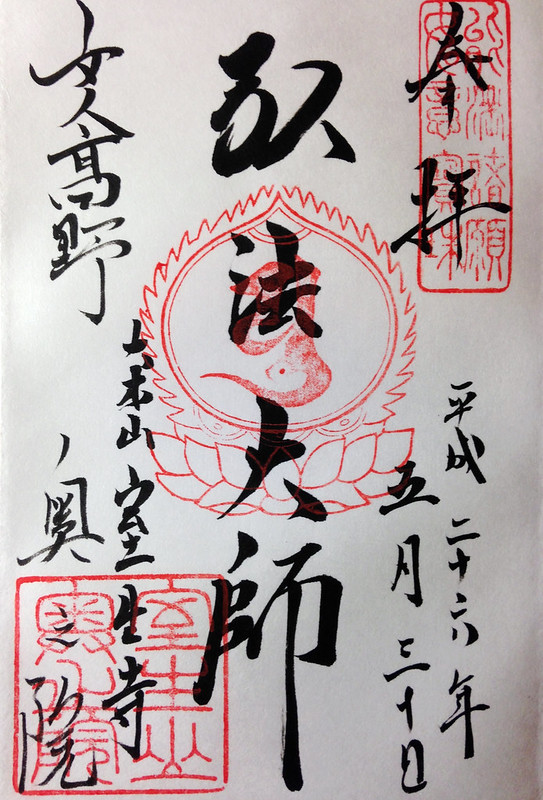 奉拝
平成二十六年
五月三十日
弘法大師
大本山 室生寺
女人高野
ノ奥之院
室生山